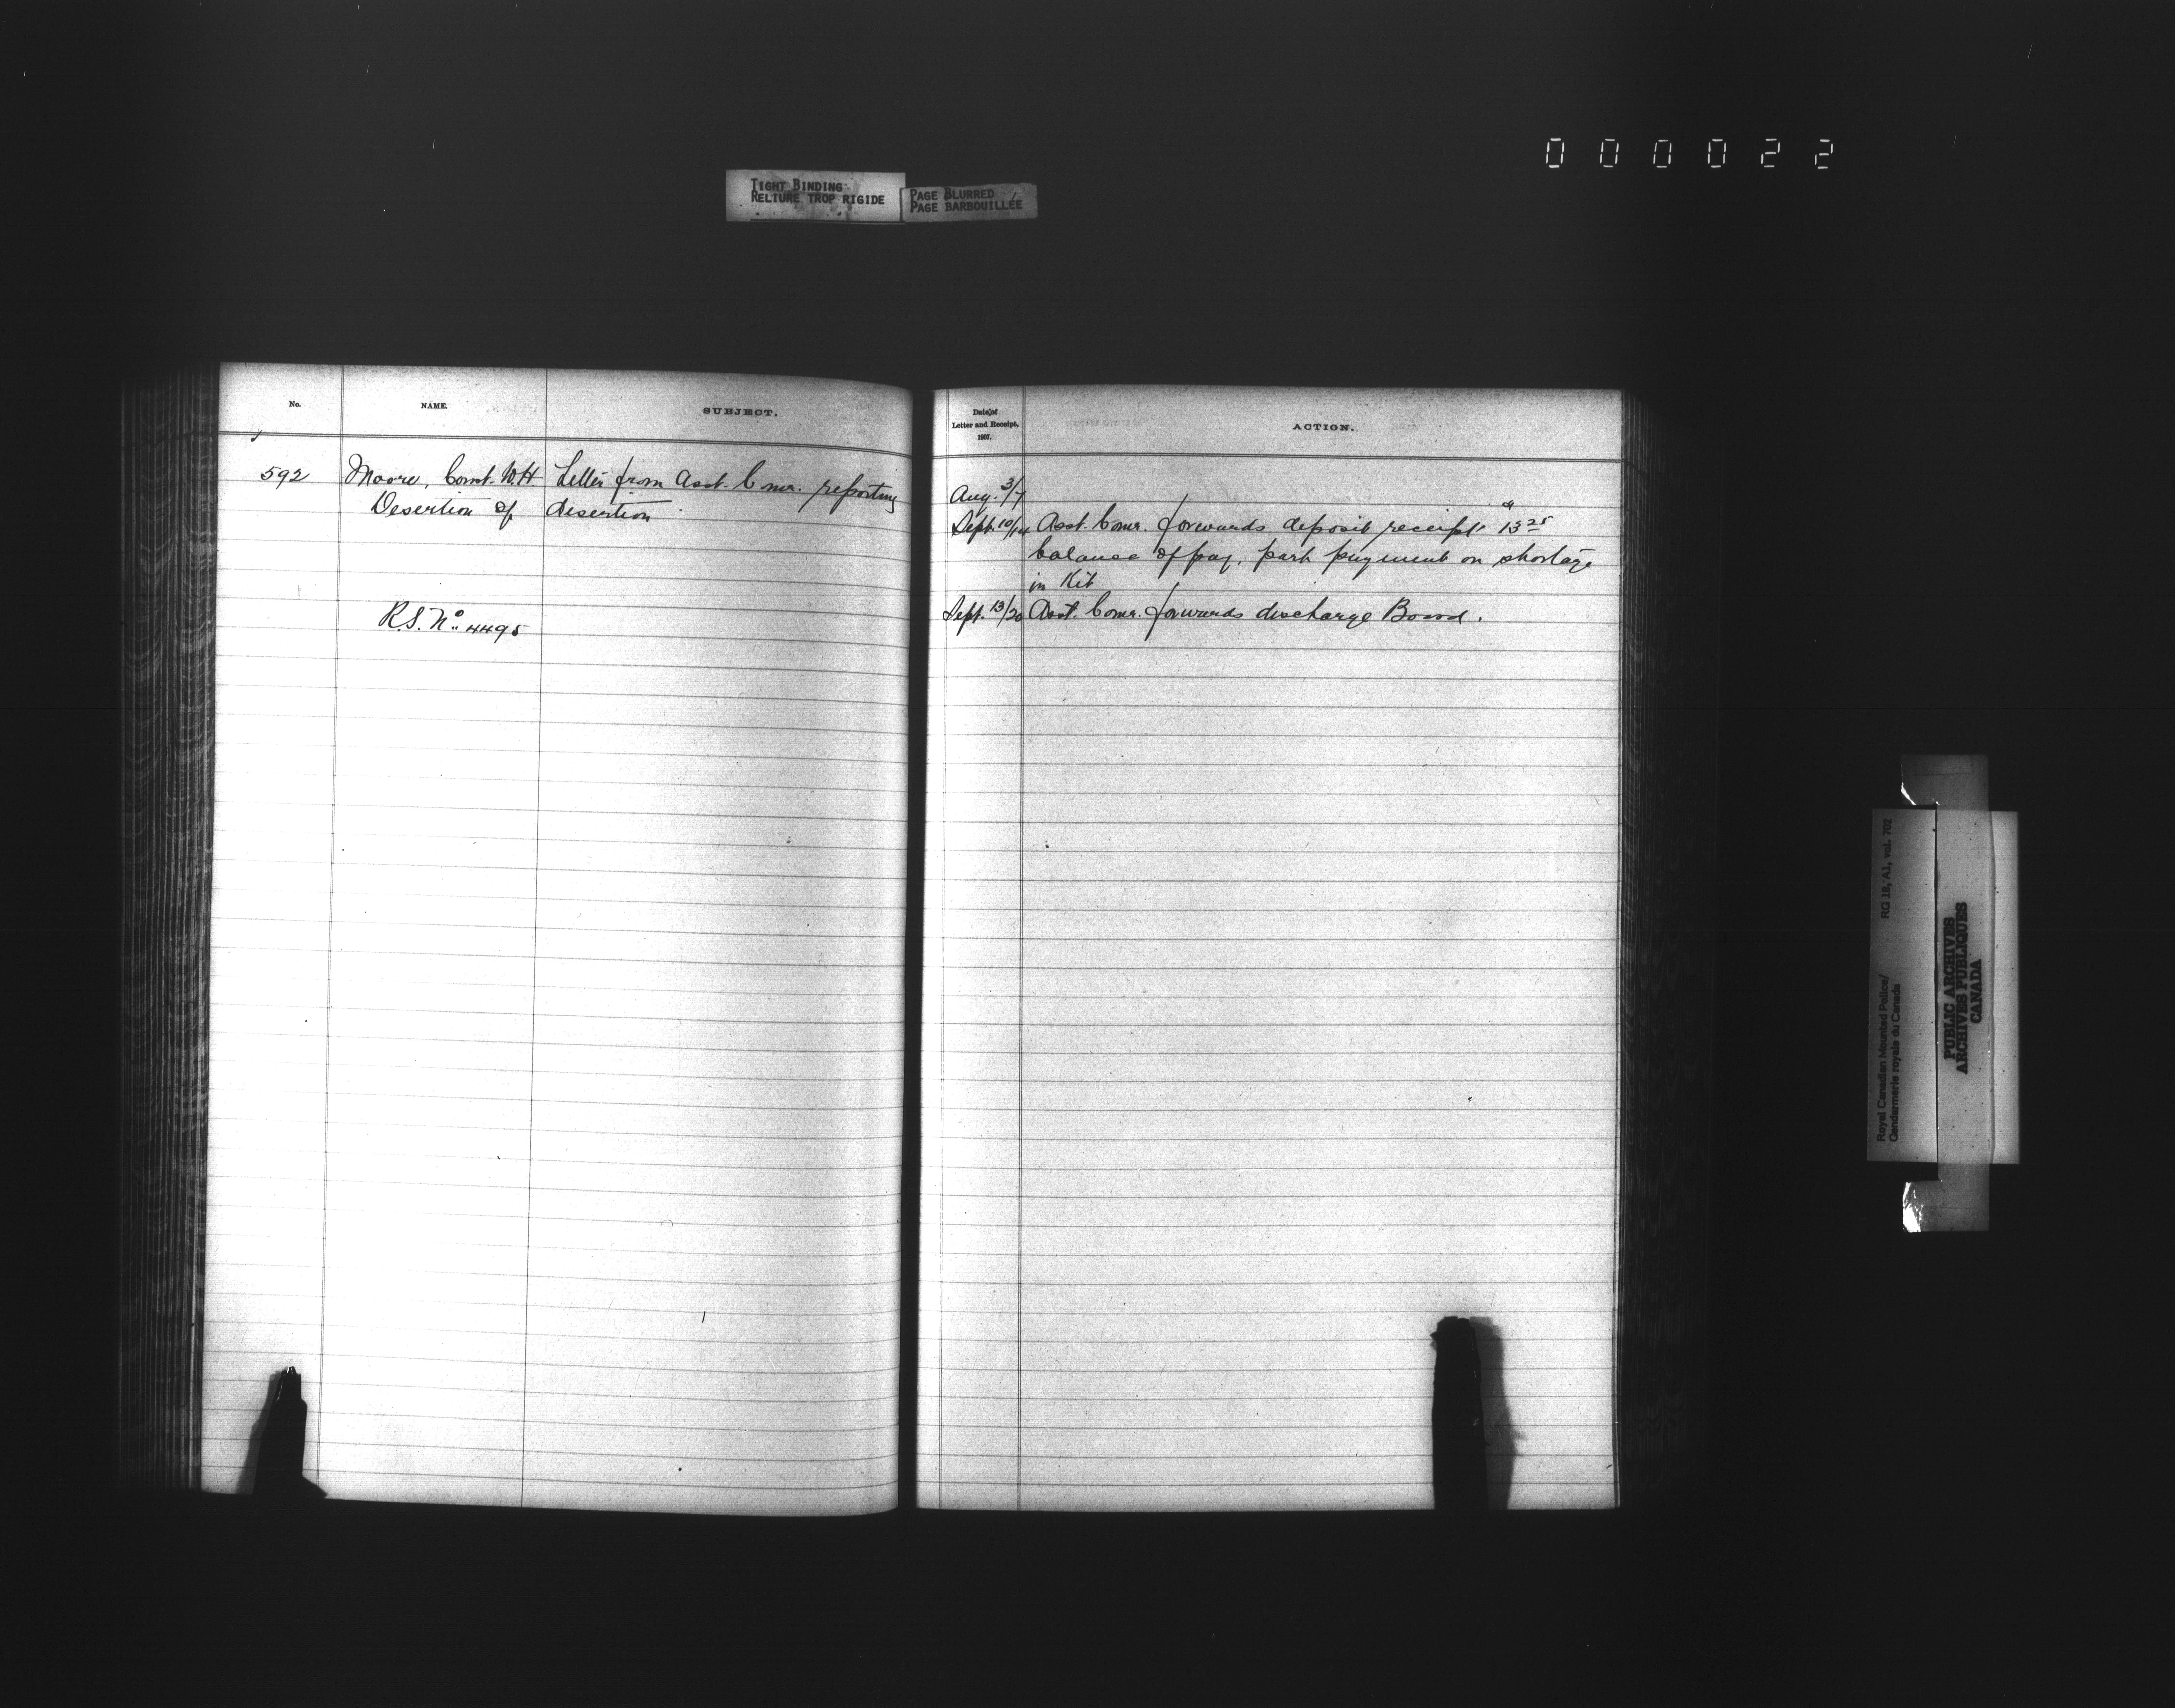 000022
TIGHT BINDING
RELIURE TROP RIGIDE
PAGE BLURRED
PAGE BARBOUILLÉE
No.
NAME.
SUBJECT.
592
Moore, Const. W.H.
Desertion of
R.S. No 4495
Letter from Asst. Comr. reporting
desertion
Date of
Letter and Receipt,
1907.
ACTION.
Aug. 3/7
Sept. 10/14 Asst. Comr. forwards deposit receipt 13 25
balance of pay, part payment on shortage
in Kit
Sept. 13/20 Asst. Comr. forwards discharge Board.
Royal Canadian Mounted Police/
Gendarmerie royale du Canada
RG 18, A1, vol. 702
PUBLIC ARCHIVES
ARCHIVES PUBLIQUES
CANADA